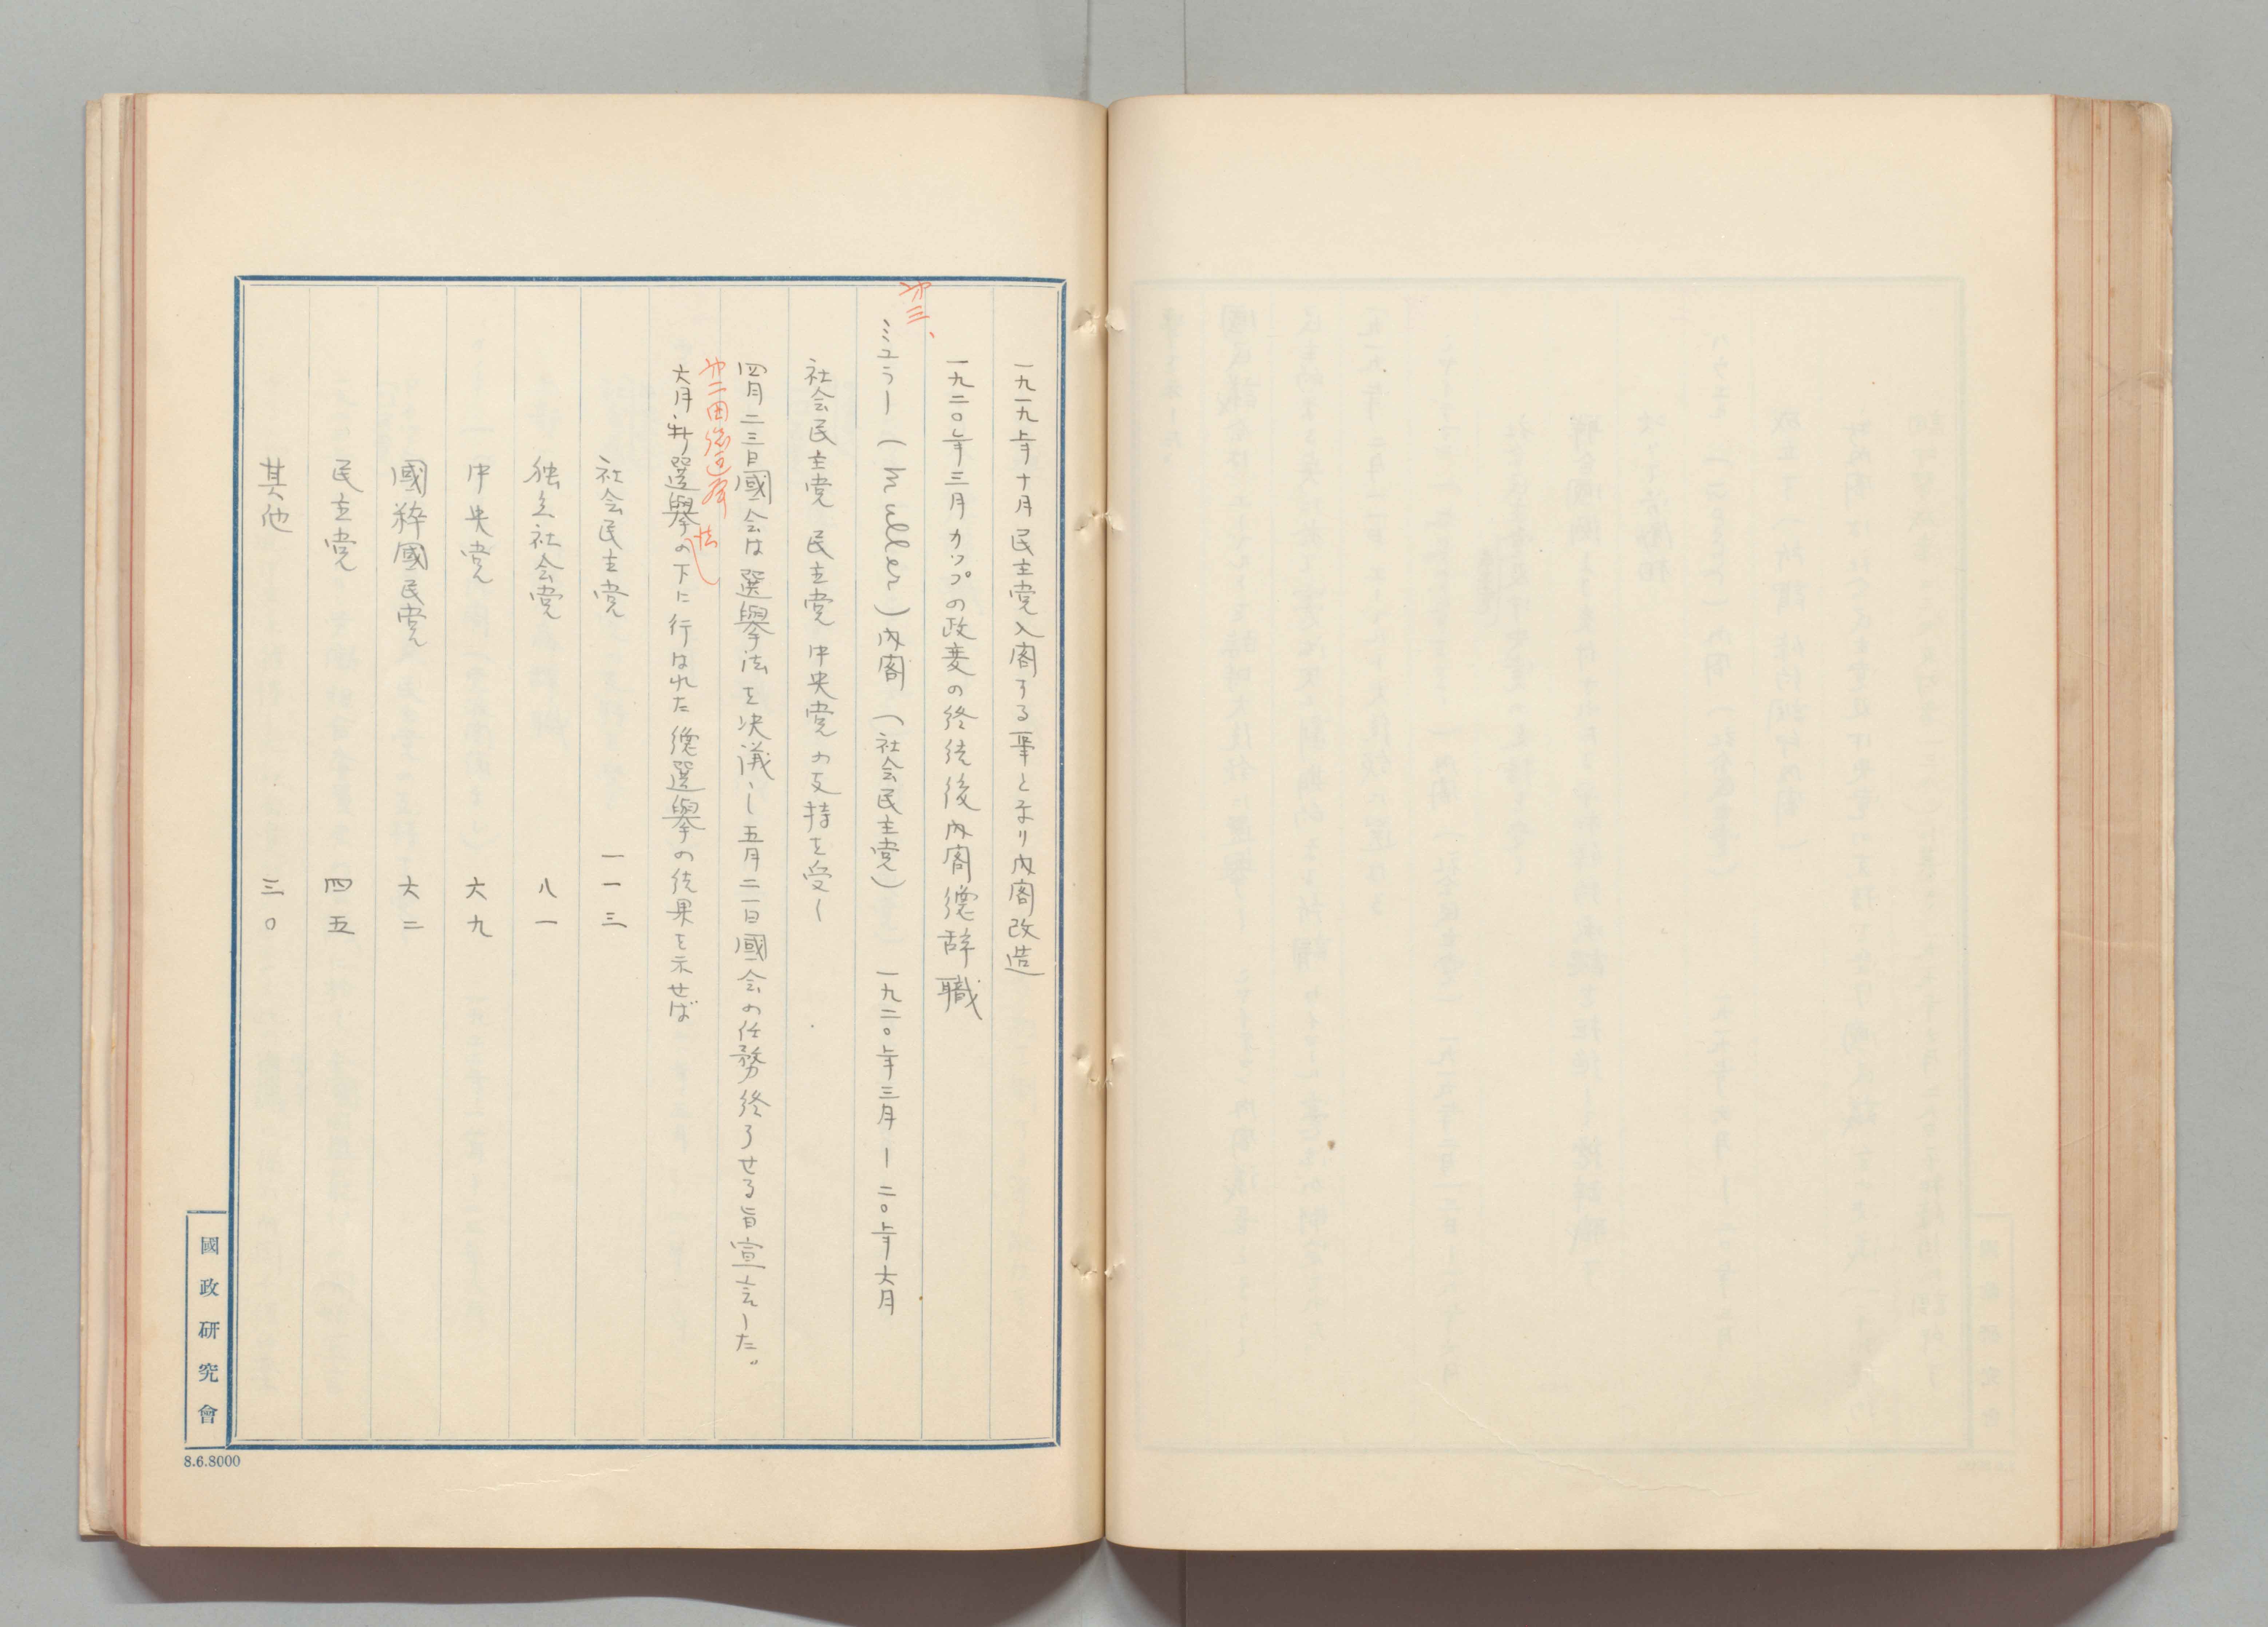 一九一九年十月民主党入閣する事となり内閣改造
一九二〇年三月カップの政変の終結後内閣總辞職
第三、
ミユラー(Müller)内閣(社会民主党)一九二〇年三月ー二〇年六月
社会民主党 民主党 中央党の支持を受し
四月二三日國会は選擧法を決議し五月二一日國会の任務終了せる旨宣言した。
第二回總選擧法
六月新選擧の下に行はれた總選擧の結果を示せば
社会民主党 一一三
独立社会党 八一
中央党 六九
國粹國民党 六二
民主党 四五
其他 三〇
國政研究會
8.6.8000